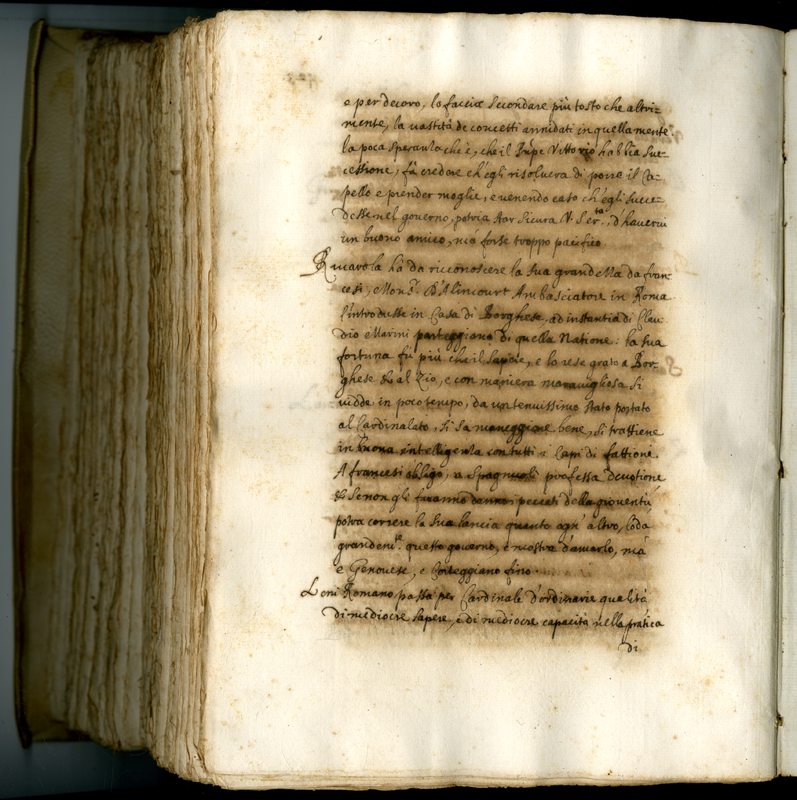 e per decoro, lo faccia secondare più tosto che altri=
mente, la vastità de concetti annidati in quella mente.
la poca speranza che è, che il Pnpe Vittorio habbia suc=
cessione, fà credere ch'egli risolverà di porre il Ca=
pello e prender moglie, e venendo caso ch'egli succe=
desse nel governo, potria star sicura V. Ser.tà, d'havervi
un buono amico, mà forse troppo pacifico
Rivarola hà da riconoscere la sua grandezza da fran=
cesi, Mons.r D'Alincourt Ambasciatore in Roma
l'introdusse in Casa di Borghese, ad instantia di Clau
dio e Marini parteggiano di quella Natione: la sua
fortuna fù più che il sapere, e lo rese grato a Bor=
ghese & al Zio, e con maniera maravigliosa si
vidde in poco tempo, da un tenuissimo stato portato
al Cardinalato, si sa maneggiare bene, si trattiene
in buona intelligenza con tutti i Capi di fattione.
A francesi obligo, a Spagnuoli professa devotione
& se non gli faranno danno i peccati della gioventù,
potrà correre la sua lancia quanto ogn' altro, loda
grandem.te questo governo, e mostra d'amarlo, mà
è Genovese, e Corteggiano fino.
Leni Romano passa per Cardinale d'ordinarie qualità
di mediocre sapere, e di mediocre capacità nella pratica
di